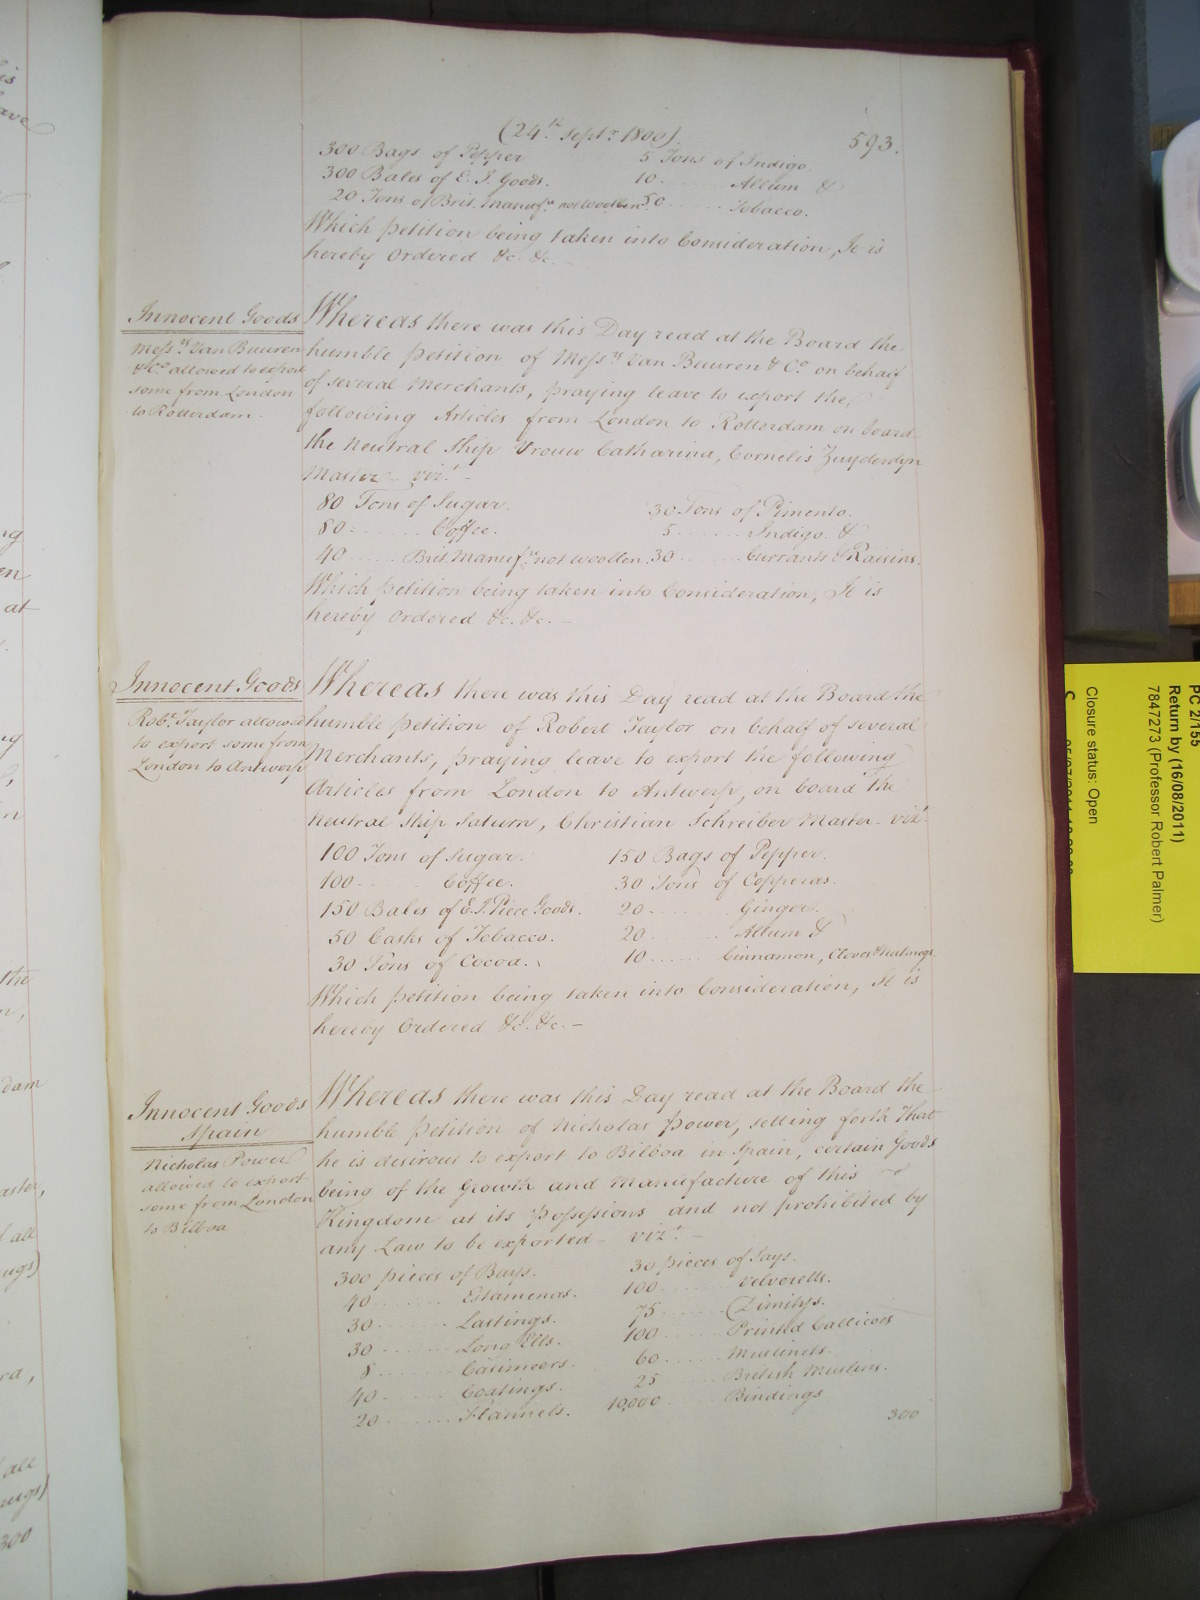 (24th Septr. 1800)
593.
300 Bags of Pepper 5 Tons of Indigo
300 Bales of E. I. Goods. 10 ...... Allum &
20 Tons of Brit. Manufre. not woollen. 50 ...... Tobacco.
Which petition being taken into Consideration, It is
hereby Ordered &c. &c. —
Innocent Goods
Messrs. Van Buuren
& Co. allowed to export
some from London
to Rotterdam.
Whereas there was this Day read at the Board the
humble petition of Messrs. Van Buuren & Co. on behalf
of several Merchants, praying leave to export the
following Articles from London to Rotterdam on board
the Neutral Ship Vrouw Catharina, Cornelis Zuyderdyn
Master - vizt. -
80 Tons of Sugar. 30 Tons of Pimento.
80 ...... Coffee. 5 ...... Indigo. &
40 ...... Brit. Manufre. not woollen. 30 ...... Currants & Raisins.
Which petition being taken into Consideration, It is
hereby Ordered &c. &c. —
Innocent Goods
Robt. Taylor allowed
to export some from
London to Antwerp
Whereas there was this Day read at the Board the
humble petition of Robert Taylor on behalf of several
Merchants, praying leave to export the following
Articles from London to Antwerp, on board the
Neutral Ship Saturn, Christian Schreiber Master - vizt.
100 Tons of Sugar. 150 Bags of Pepper.
100 ...... Coffee. 30 Tons of Copperas.
150 Bales of E. I. Piece Goods. 20 ...... Ginger.
50 Casks of Tobacco. 20 ...... Allum &
30 Tons of Cocoa. 10 ...... Cinnamon, Cloves & Nutmegs
Which petition being taken into Consideration, It is
hereby Ordered &c. &c. —
Innocent Goods
Spain
Nicholas Power
allowed to export
some from London
to Bilboa
Whereas there was this Day read at the Board the
humble Petition of Nicholas Power, setting forth that
he is desirous to export to Bilboa in Spain, certain Goods
being of the Growth and Manufacture of this
Kingdom at its Possessions and not prohibited by
any Law to be exported - vizt. -
300 pieces of Bays. 30 pieces of Says.
40 ...... Estamenas. 100 ...... Velveretts.
30 ...... Lastings. 75 ...... Dimitys.
30 ...... Long Ells. 100 ...... Printed Callicoes
8 ...... Casimeers. 60 ...... Muslinets.
40 ...... Coatings. 25 ...... British Muslins.
20 ...... Flannels. 10,000 ...... Bindings
300
PC 2/155
Return by (16/08/2011)
7847273 (Professor Robert Palmer)
Closure status: Open